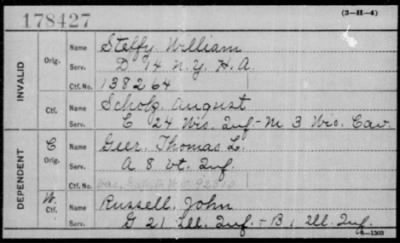 178427
(3-H-4)
INVALID
Orig.
Name Steffy William
Serv. D 14 N.Y. H.A.
Ctf. No. 138264
Ctf.
Name August
Serv. E 24 Wis. Inf - M 3 Wis. Cav.
DEPENDENT
C Orig.
Name Geer, Thomas L.
Serv. A 8 Vt. Inf.
Ctf. No.
W. Ctf.
Name Russell, John
Serv. G 21 Ill. Inf. - B, Ill. Inf.